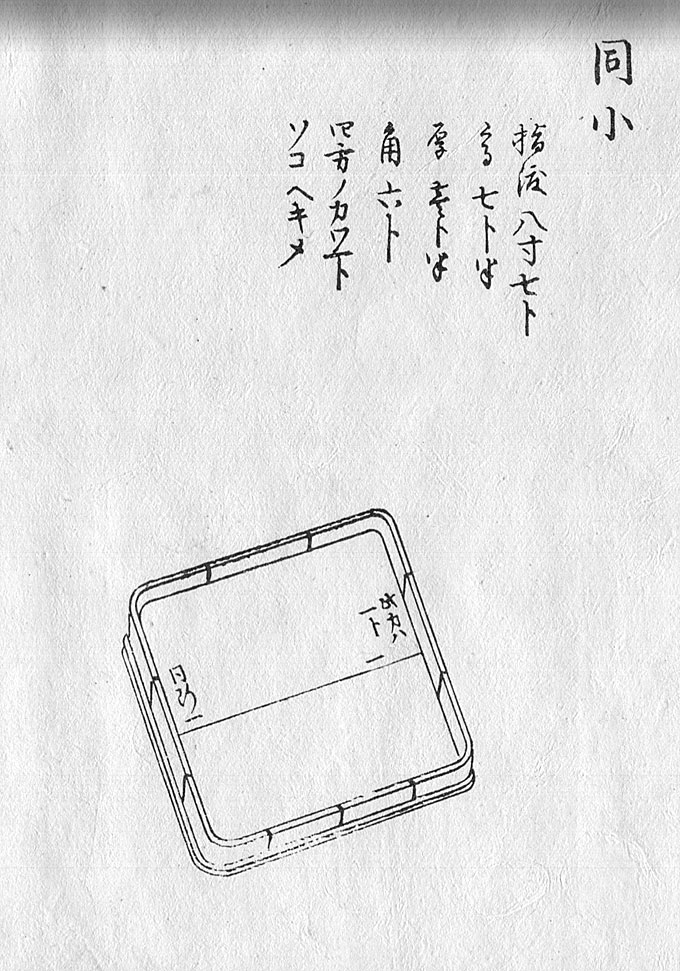 同小
指渡八寸七ト
高七ト半
厚壱ト半
角六ト
四方ノカワ下
ソコヘキメ
一ト
一